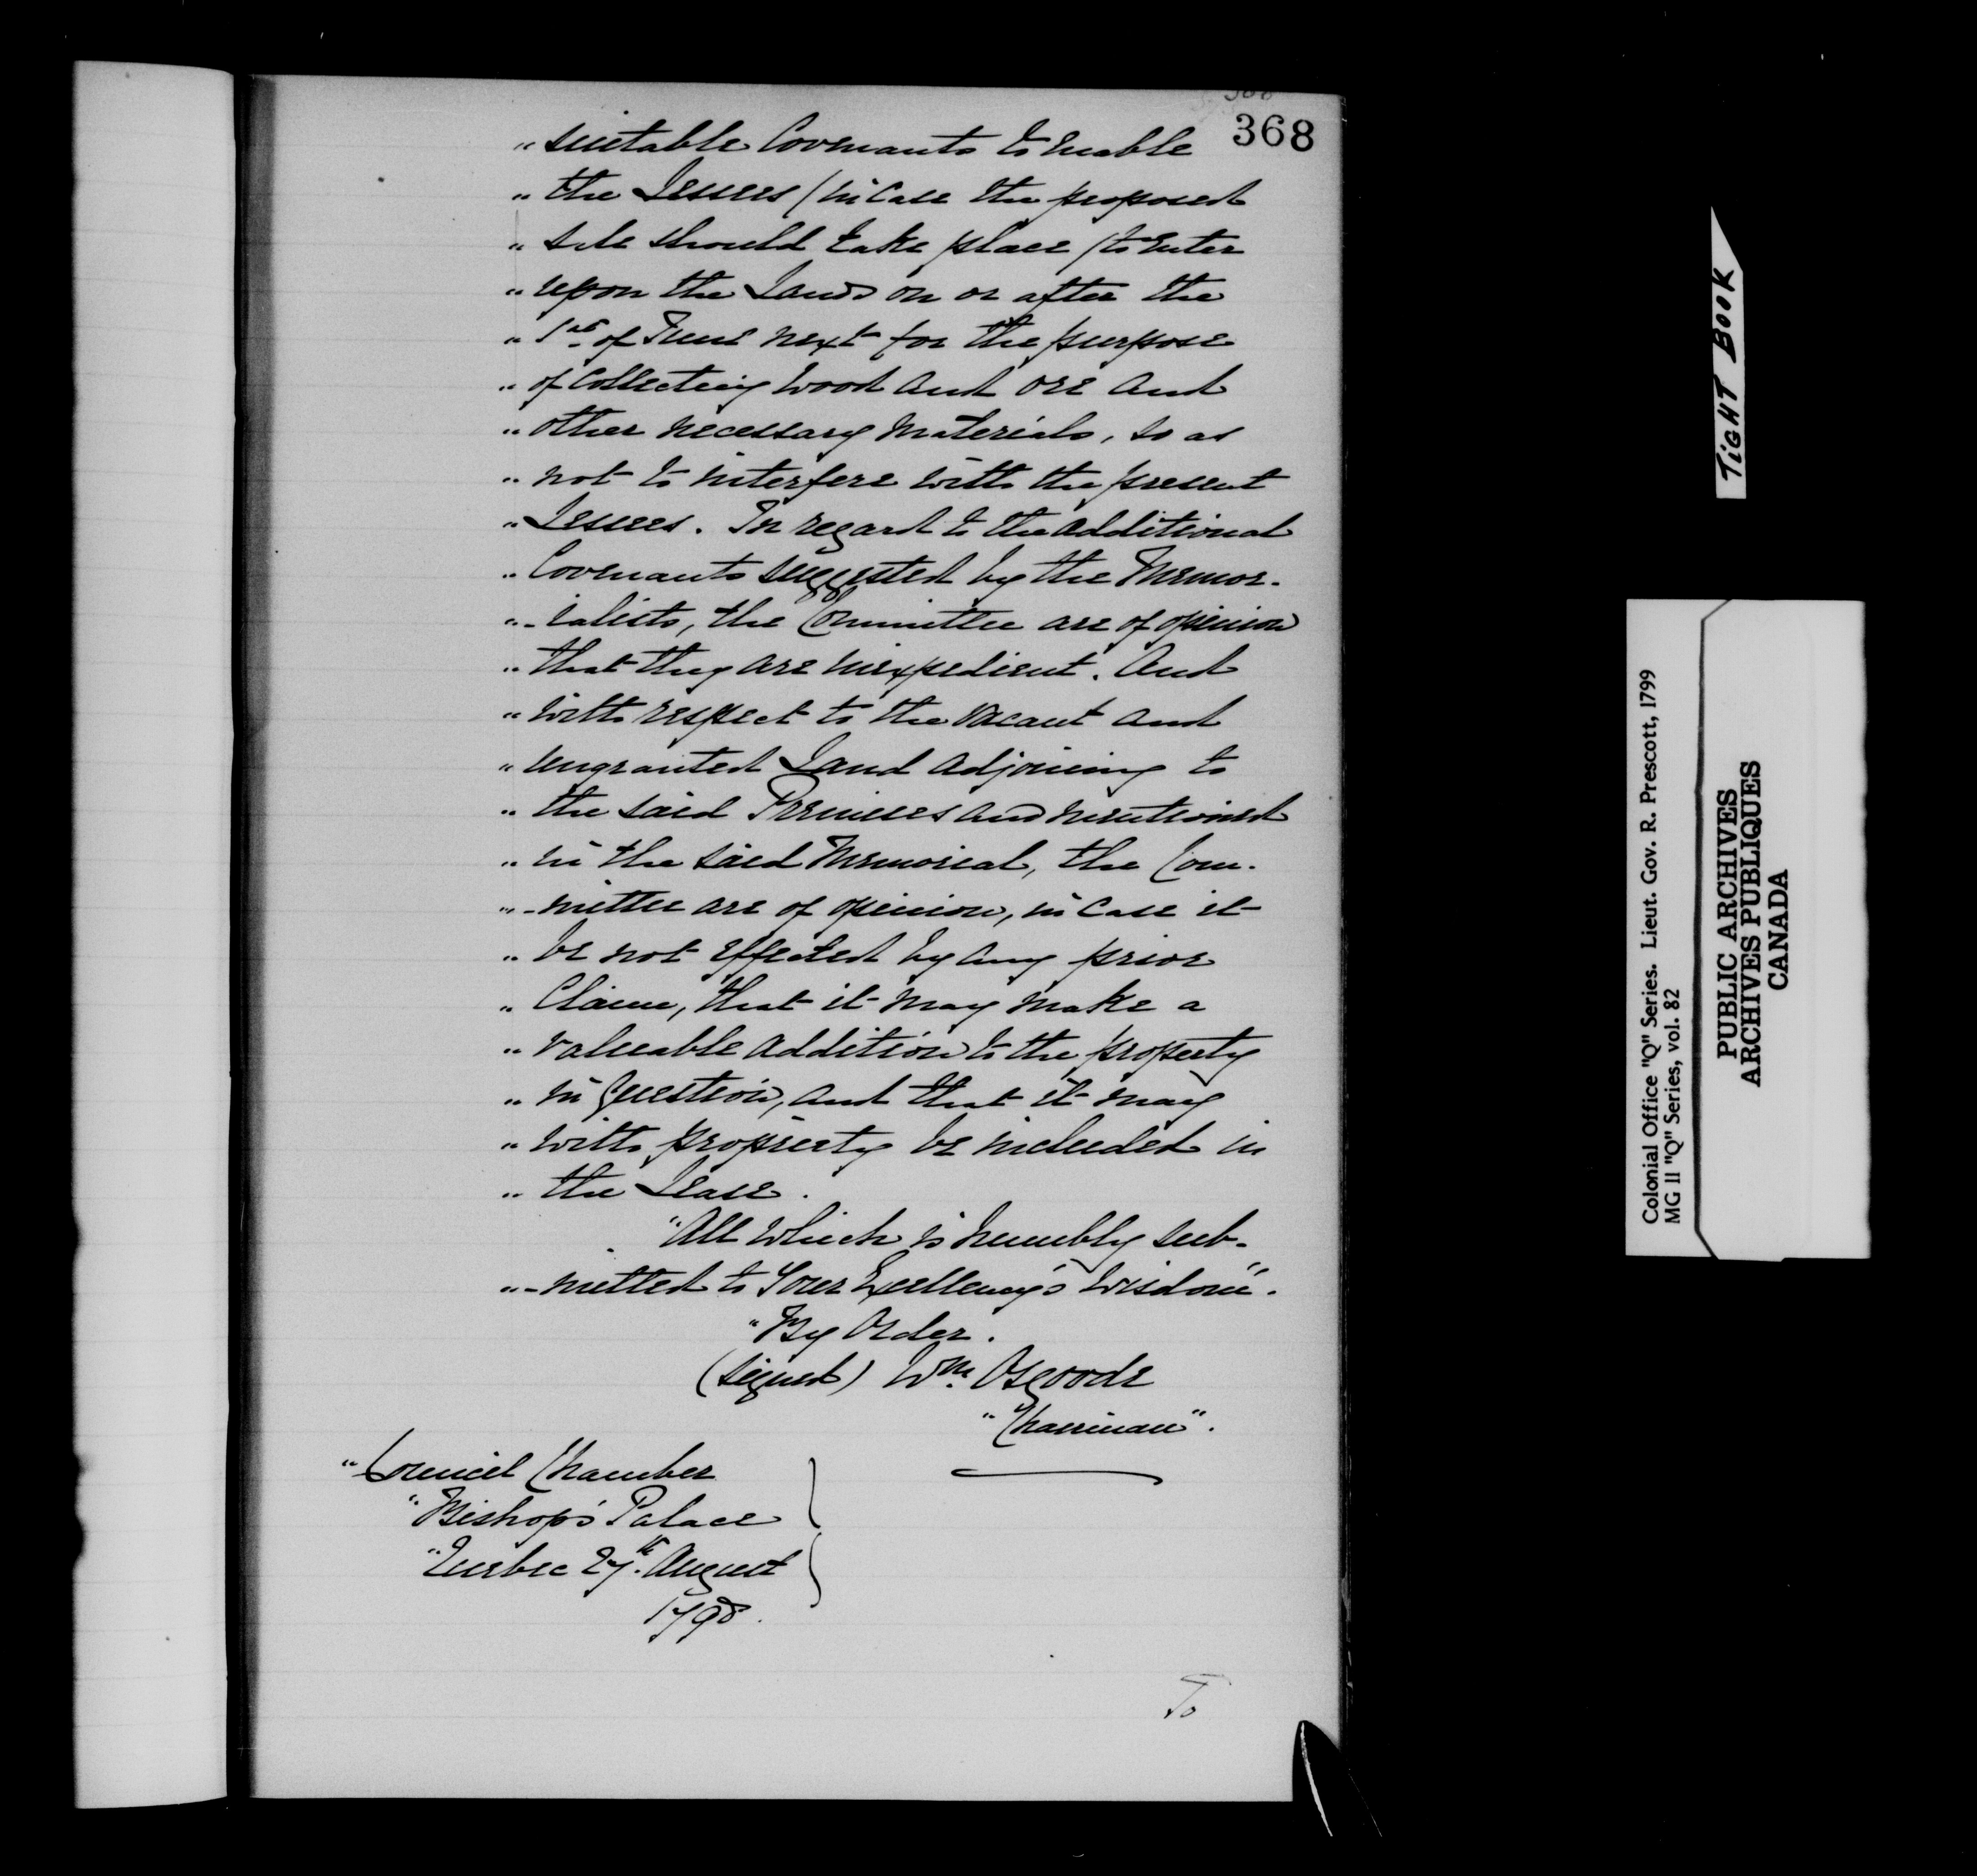 368
" suitable Covenants to enable
" the Lessees / in case the proposed
" sale should take place / to enter
" upon the Lands on or after the
" 1st of June next for the purpose
" of collecting wood and ore and
" other necessary materials, so as
" not to interfere with the present
" Lessees. In regard to the additional
" Covenants suggested by the Memor-
" -ialists, the Committee are of opinion
" that they are inexpedient. And
" with respect to the vacant and
" ungranted Land adjoining to
" the said Premises and mentioned
" in the said Memorial, the Com-
" -mittee are of opinion, in case it
" be not effected by any prior
" Claim, that it may make a
" valuable addition to the property
" in question, and that it may
" with propriety be included in
" the Lease.
"All which is humbly sub-
" -mitted to Your Excellency's wisdom".
"By Order.
(signed) Wm. Osgoode
"Chairman".
"Council Chamber
"Bishop's Palace
"Quebec 27th. August
1798.
To
TIGHT BOOK
Colonial Office "Q" Series. Lieut. Gov. R. Prescott, 1799
MG 11 "Q" Series, vol. 82
PUBLIC ARCHIVES
ARCHIVES PUBLIQUES
CANADA